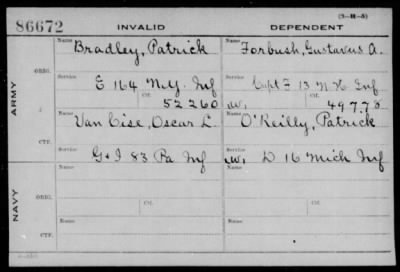 (3-H-5)
86672 INVALID DEPENDENT
Name Bradley, Patrick Name Forbush, Gustavus A.
ORIG. Service E 164 N.Y. Inf Service Capt F 13 N H Inf
Ctf. 52260 W. Ctf. 49778
ARMY
Name Van Cise, Oscar L. Name O'Reilly, Patrick
CTF. Service G & I 83 Pa Inf Service W. D 16 Mich Inf
Name Name
ORIG. Service Ctf. Service Ctf.
NAVY
Name Name
CTF. Service Service